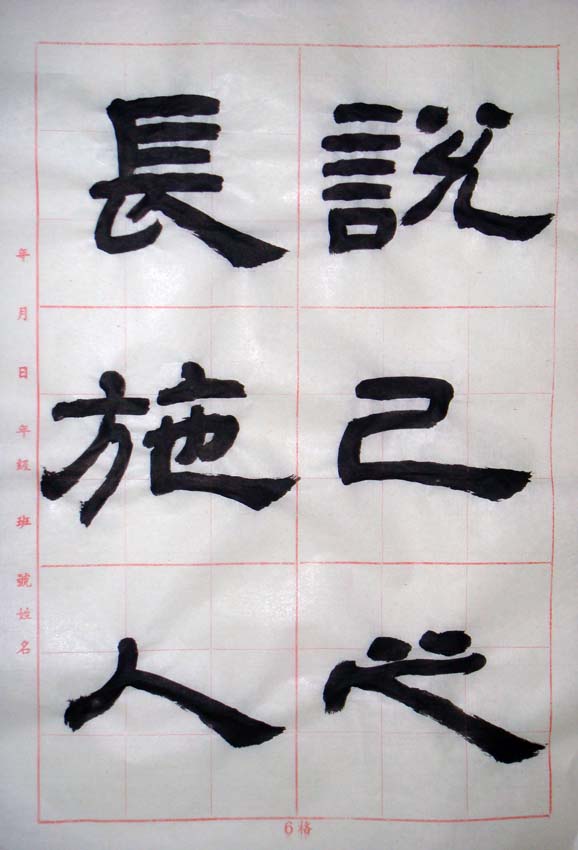 說己之
長施人
年 月 日 年級 班 號姓名
6格